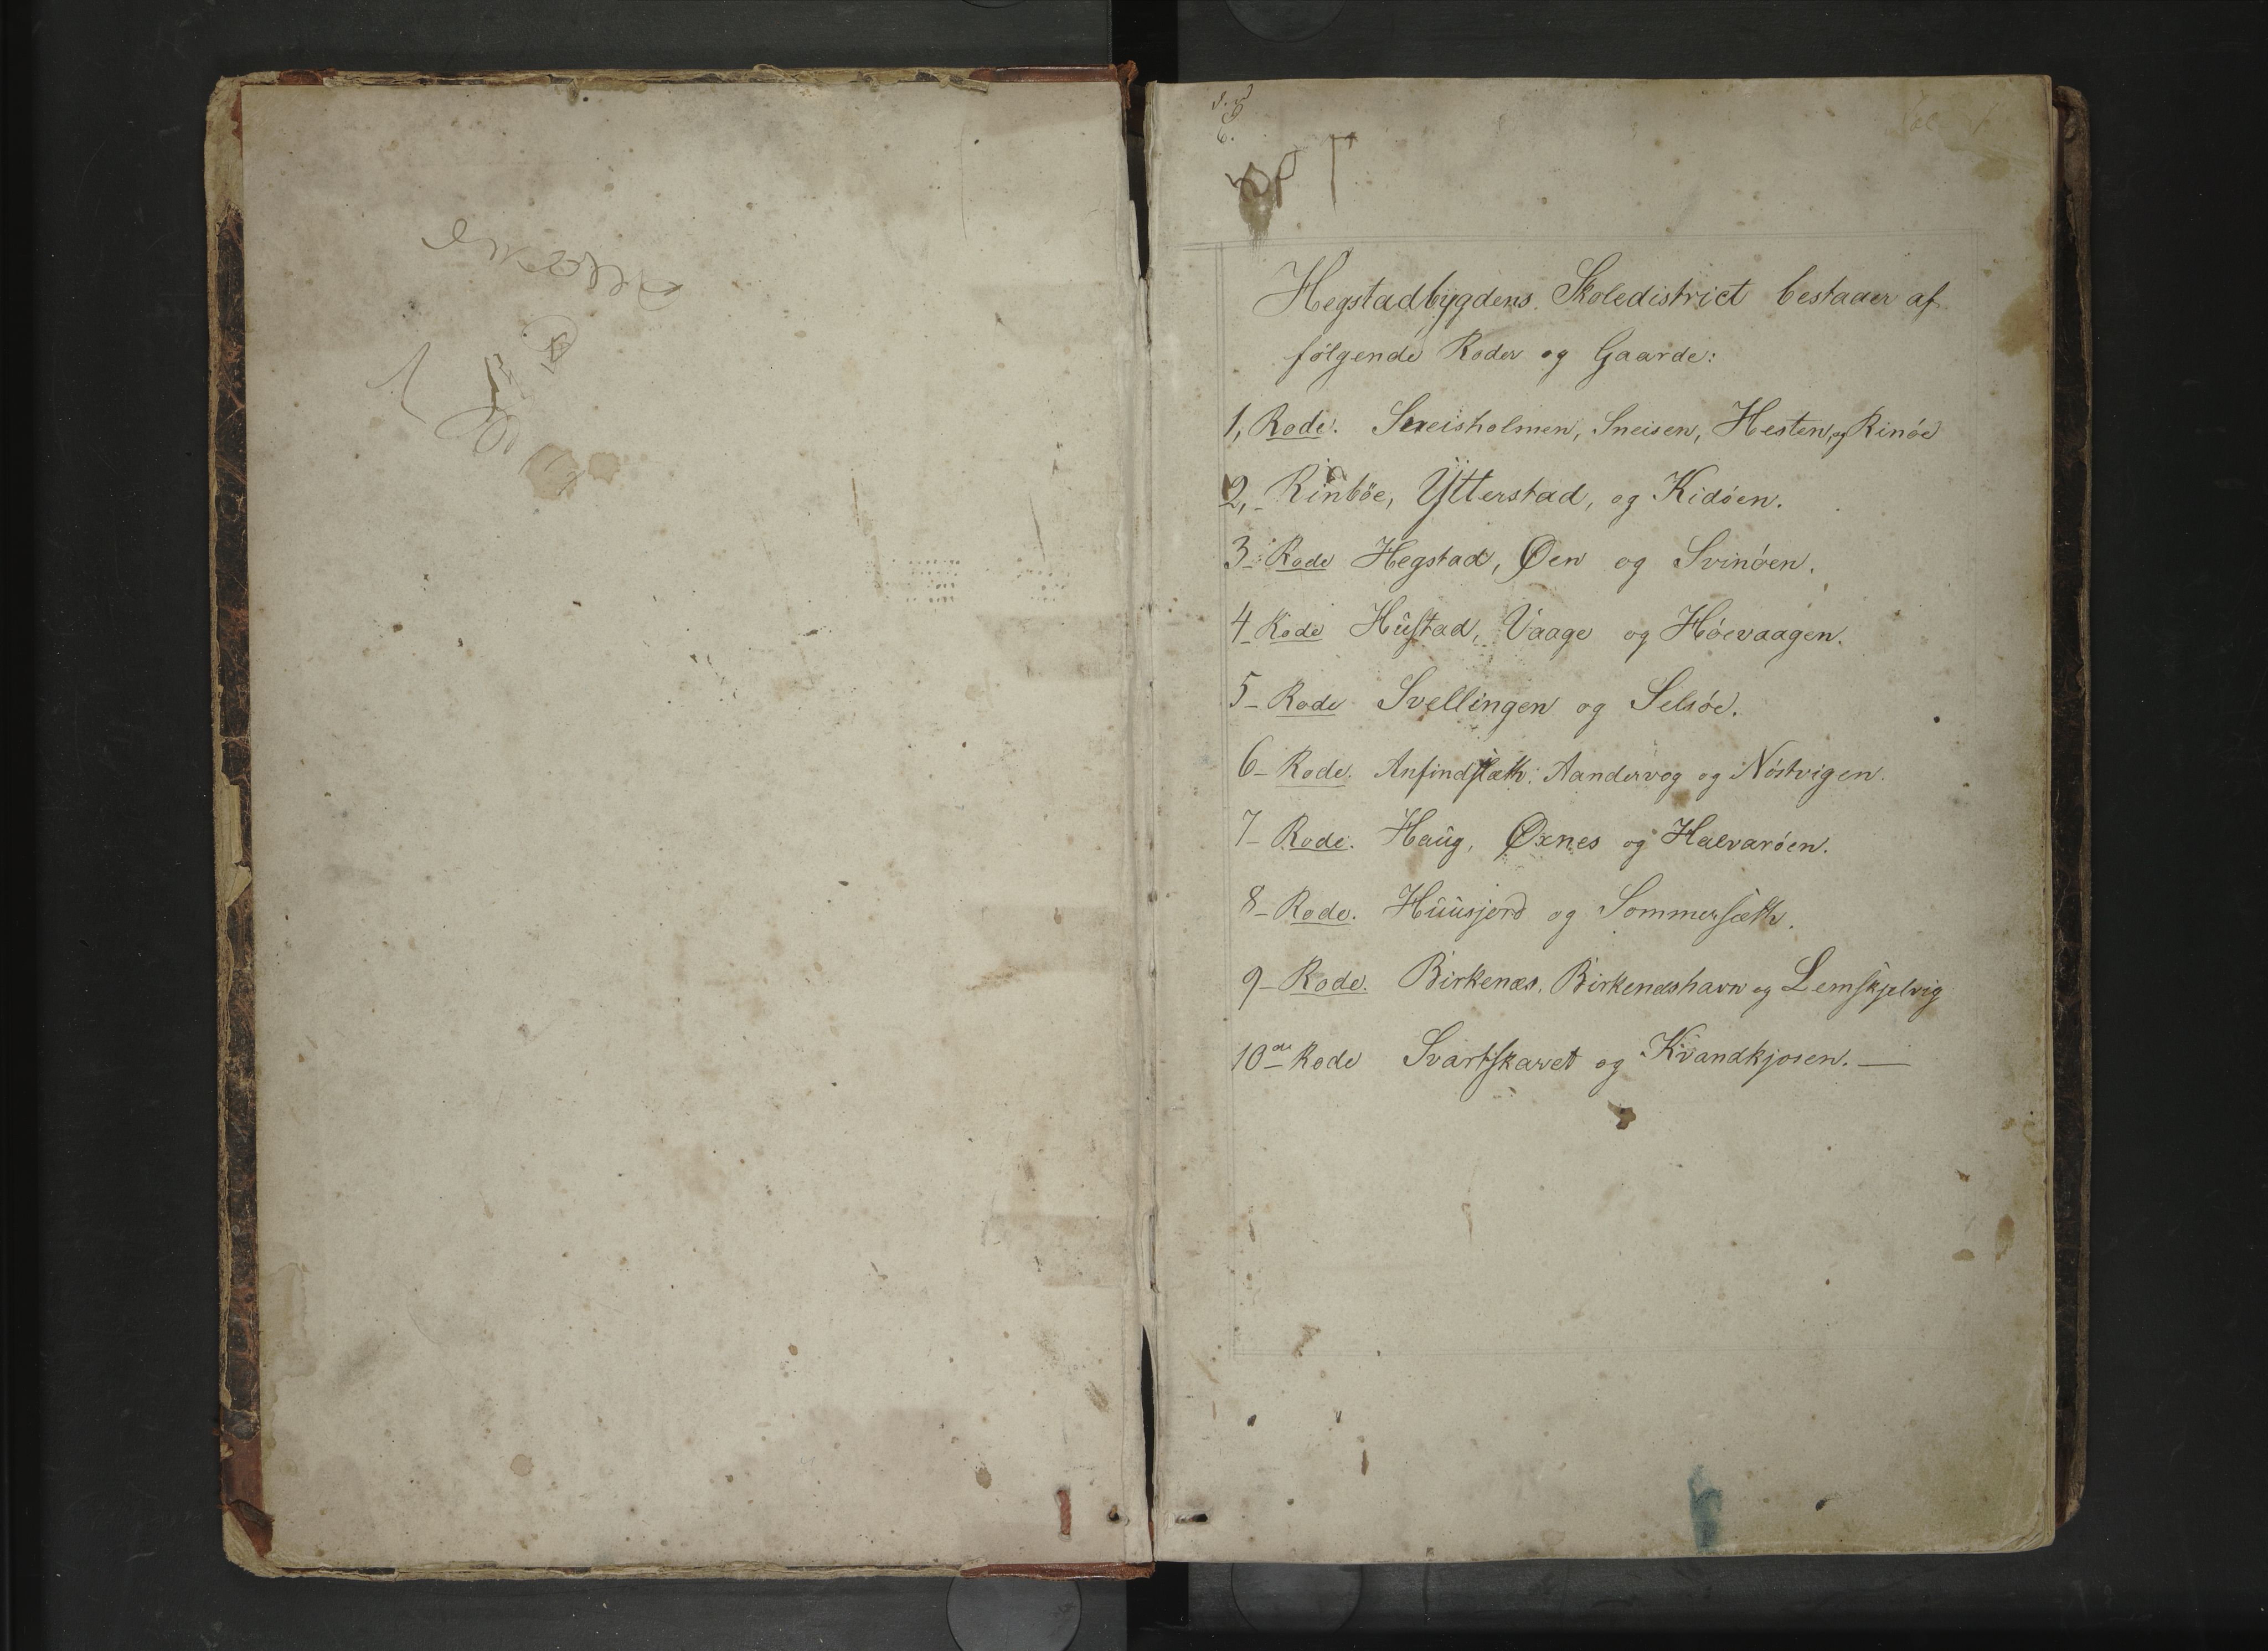 Hegstadbÿgdens Skoledistrict bestaaer af
følgende Roder og Gaarde:
1, Rode. Sneisholmen, Sneisen, Hesten, og Rinøe
2, Rinbøe, Ÿtterstad, og Kidøen.
3 Rode Hegstad, Øen og Svinøen.
4 Rode Hustad, Vaage og Høevaagen.
5 Rode Svellingen og Selsøe.
6 Rode. Anfindsæth, Aandervog og Nøstvigen.
7 Rode. Haug, Øxnes og Halvarøen.
8 Rode. Huusjord og Sommersæth.
9 Rode. Birkenæs, Birkenæshavn og Lemskjelvig
10de Rode Svartskaret og Kvandkjosen. —